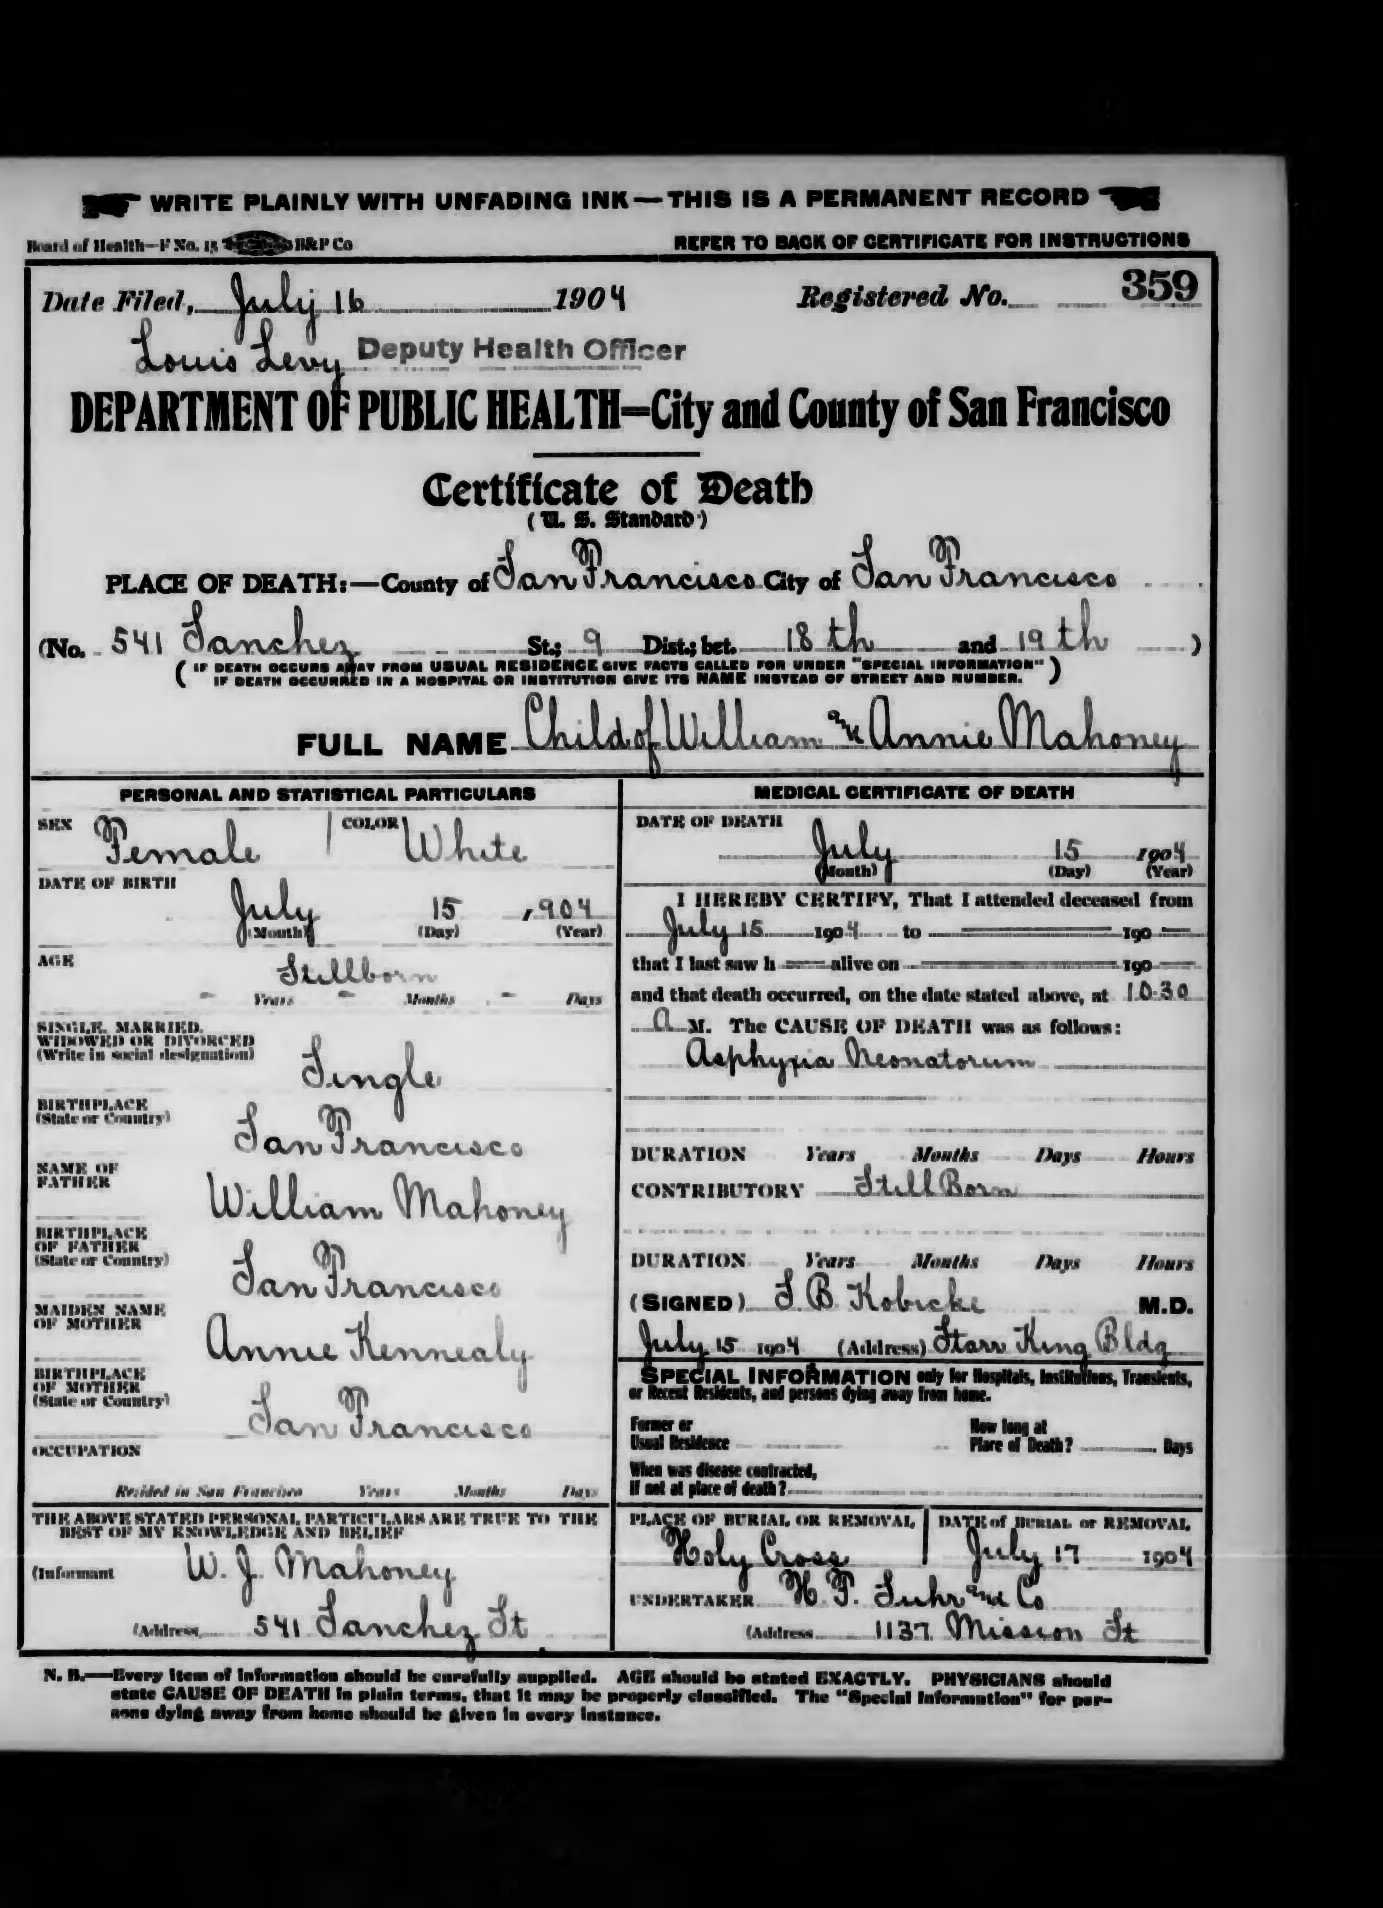 WRITE PLAINLY WITH UNFADING INK — THIS IS A PERMANENT RECORD
Board of Health—F No. 15 B&P Co REFER TO BACK OF CERTIFICATE FOR INSTRUCTIONS
Date Filed, July 16 1904 Registered No. 359
Louis Levy Deputy Health Officer
DEPARTMENT OF PUBLIC HEALTH=City and County of San Francisco
Certificate of Death
(U. S. Standard)
PLACE OF DEATH:—County of San Francisco City of San Francisco
(No. 541 Sanchez St.; 9 Dist.; bet. 18th and 19th )
( IF DEATH OCCURS AWAY FROM USUAL RESIDENCE GIVE FACTS CALLED FOR UNDER "SPECIAL INFORMATION"
IF DEATH OCCURRED IN A HOSPITAL OR INSTITUTION GIVE ITS NAME INSTEAD OF STREET AND NUMBER. )
FULL NAME Child of William and Annie Mahoney
PERSONAL AND STATISTICAL PARTICULARS
SEX Female COLOR White
DATE OF BIRTH
July 15 1904
(Month) (Day) (Year)
AGE Stillborn
Years Months Days
SINGLE, MARRIED,
WIDOWED OR DIVORCED
(Write in social designation) Single
BIRTHPLACE
(State or Country) San Francisco
NAME OF
FATHER William Mahoney
BIRTHPLACE
OF FATHER
(State or Country) San Francisco
MAIDEN NAME
OF MOTHER Annie Kennealy
BIRTHPLACE
OF MOTHER
(State or Country) San Francisco
OCCUPATION
Resided in San Francisco Years Months Days
THE ABOVE STATED PERSONAL PARTICULARS ARE TRUE TO THE
BEST OF MY KNOWLEDGE AND BELIEF
(Informant W. J. Mahoney
(Address 541 Sanchez St
MEDICAL CERTIFICATE OF DEATH
DATE OF DEATH
July 15 1904
(Month) (Day) (Year)
I HEREBY CERTIFY, That I attended deceased from
July 15 1904 to 190
that I last saw h alive on 190
and that death occurred, on the date stated above, at 10.30
A M. The CAUSE OF DEATH was as follows:
Asphyxia Neonatorum
DURATION Years Months Days Hours
CONTRIBUTORY Still Born
DURATION Years Months Days Hours
(SIGNED) F B. Kobicke M.D.
July 15 1904 (Address) Starr King Bldg
SPECIAL INFORMATION only for Hospitals, Institutions, Transients,
or Recent Residents, and persons dying away from home.
Former or
Usual Residence
How long at
Place of Death? Days
When was disease contracted,
If not at place of death?
PLACE OF BURIAL OR REMOVAL DATE of BURIAL or REMOVAL
Holy Cross July 17 1904
UNDERTAKER H. F. Suhr and Co
(Address 1137 Mission St
N. B.—Every item of information should be carefully supplied. AGE should be stated EXACTLY. PHYSICIANS should
state CAUSE OF DEATH in plain terms, that it may be properly classified. The "Special Information" for per-
sons dying away from home should be given in every instance.